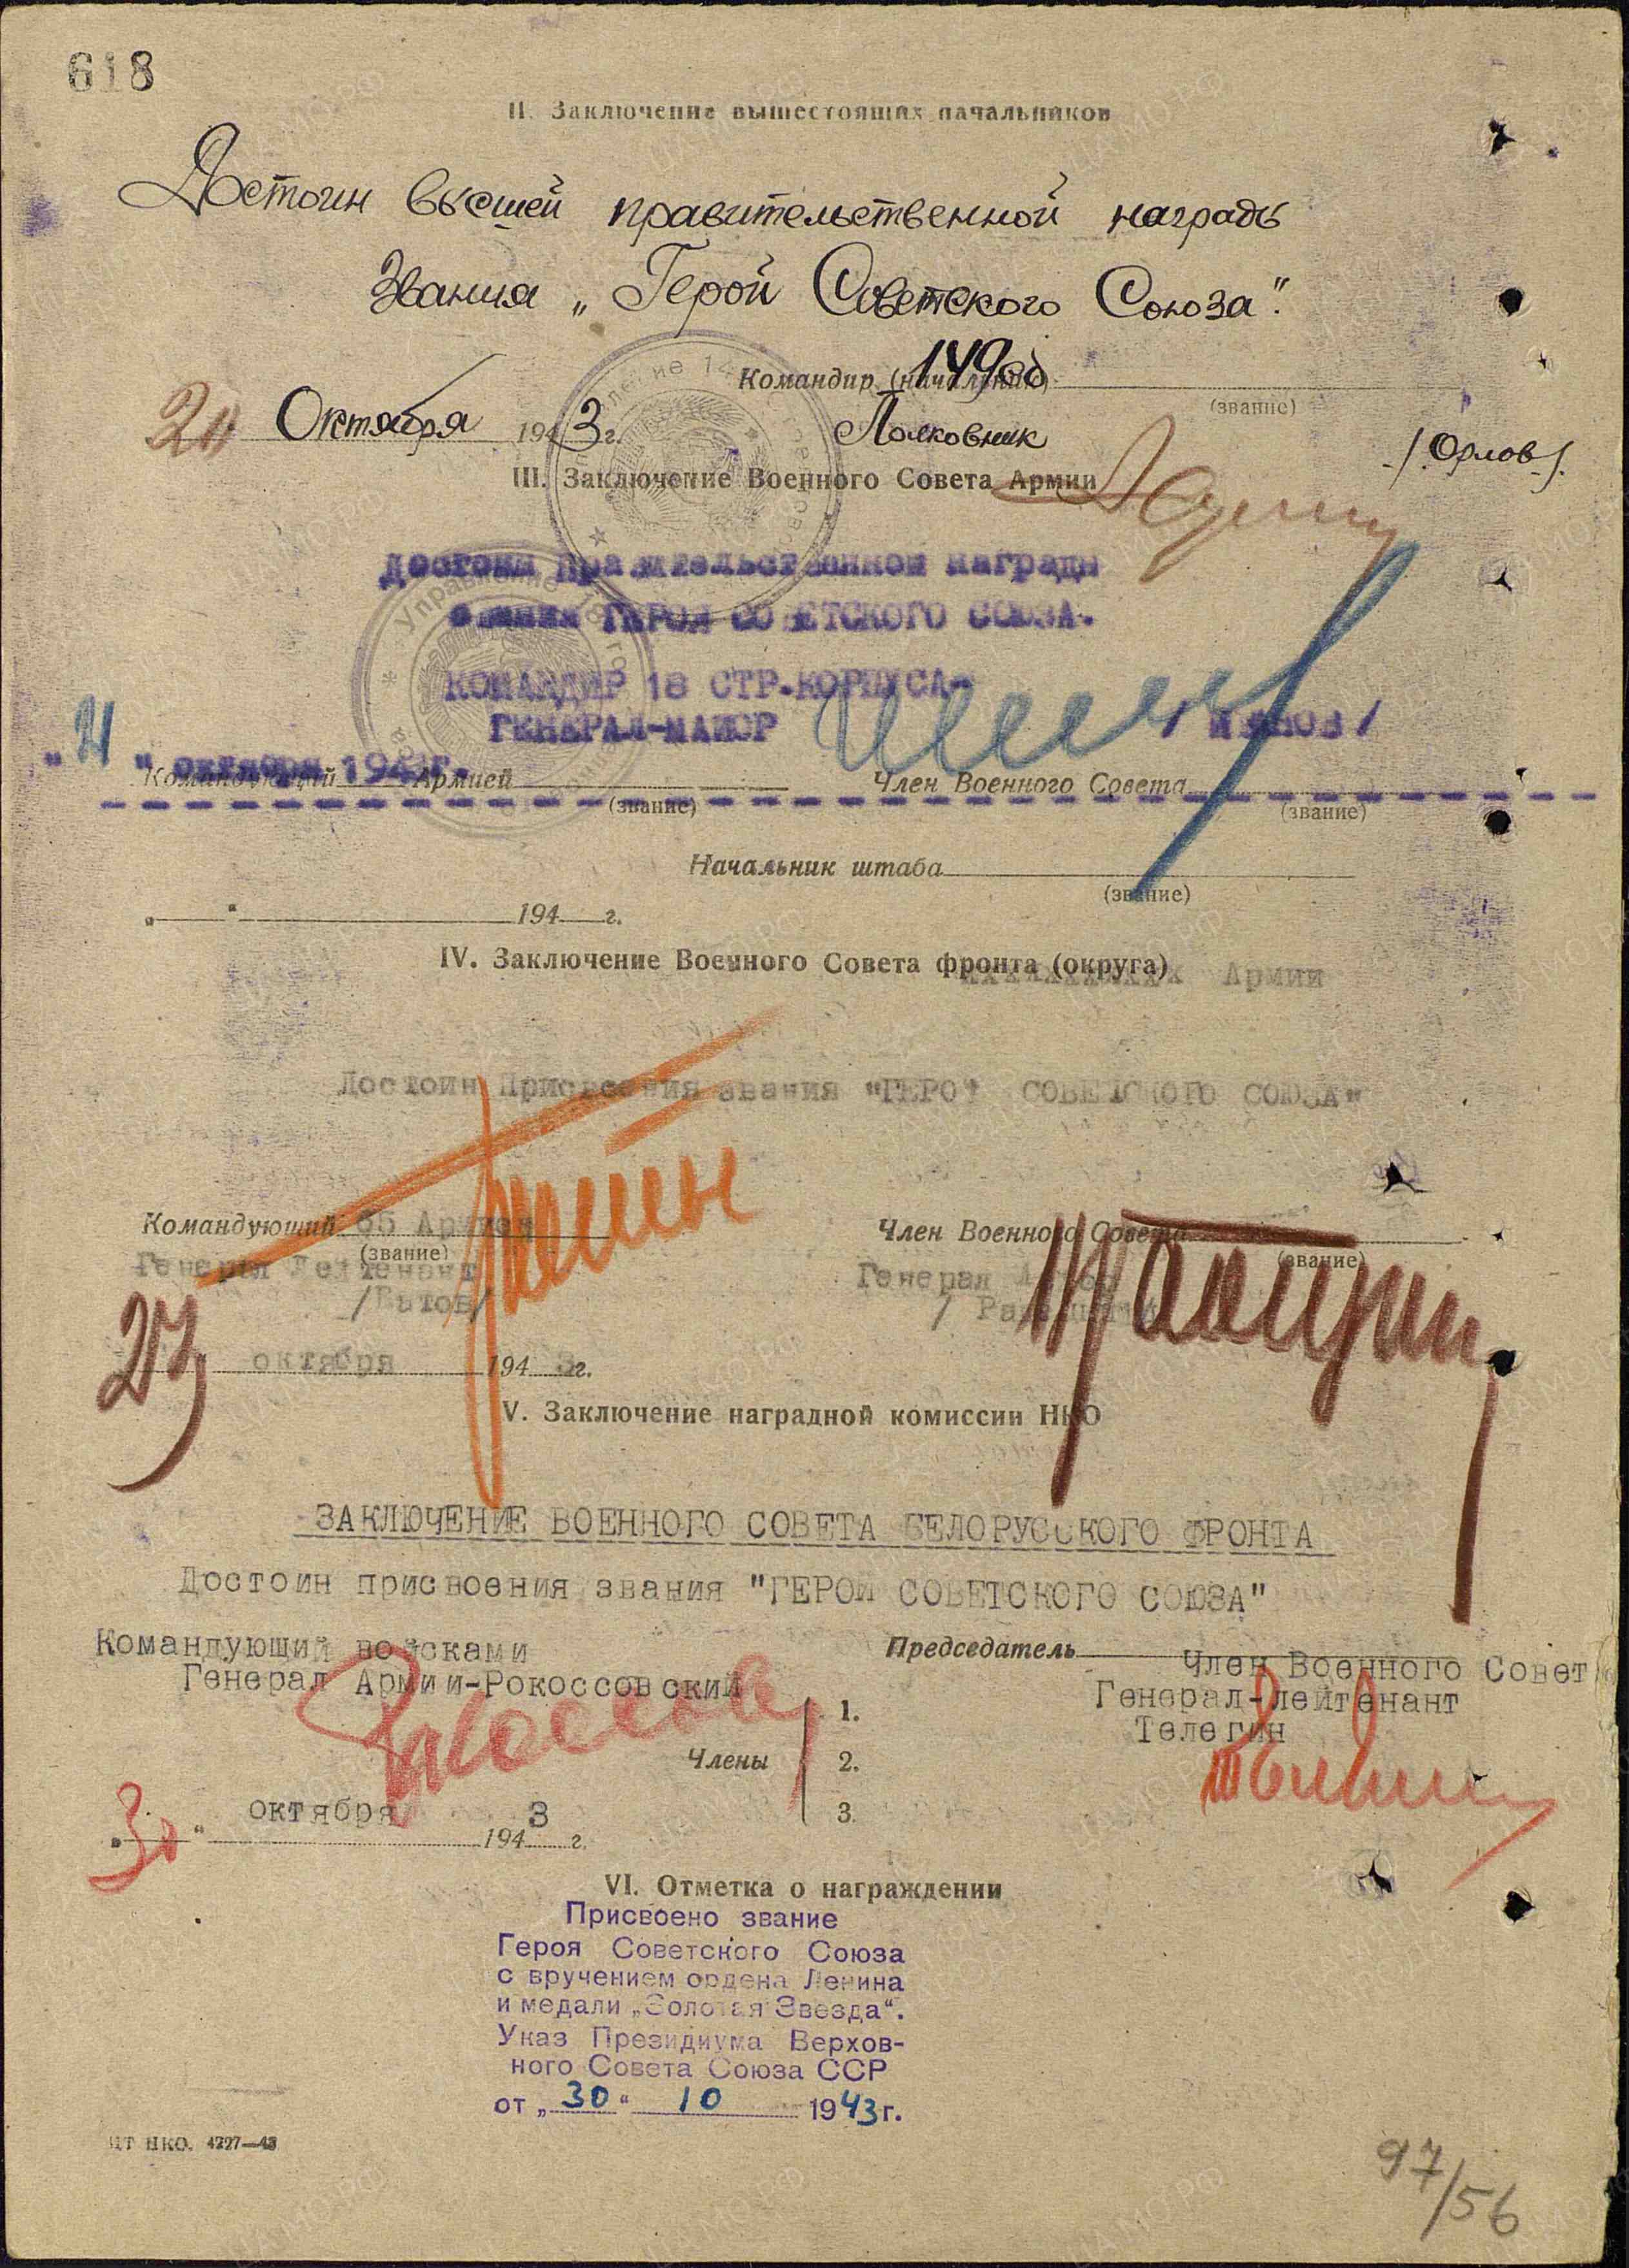 618
II. Заключение вышестоящих начальников
Достоин высшей правительственной награды
Звания „Герой Советского Союза".
Командир (начальник) 149сд
(звание)
20 Октября 1943 г.
Полковник
/Орлов/.
III. Заключение Военного Совета Армии
достоин правительственной награды
звания ГЕРОЯ СОВЕТСКОГО СОЮЗА.
КОМАНДИР 18 СТР.КОРПУСА-
ГЕНЕРАЛ-МАЙОР / ИВАНОВ /
"21" октября 1943г.
Командующий Армией
(звание)
Член Военного Совета
(звание)
Начальник штаба
(звание)
„ “ 194 г.
IV. Заключение Военного Совета фронта (округа) Армии
Достоин Присвоения звания "ГЕРОЙ СОВЕТСКОГО СОЮЗА"
Командующий 65 Армией
(звание)
Генерал Лейтенант
/Батов/
Член Военного Совета
(звание)
Генерал
октября 1943 г.
V. Заключение наградной комиссии НКО
ЗАКЛЮЧЕНИЕ ВОЕННОГО СОВЕТА БЕЛОРУССКОГО ФРОНТА
Достоин присвоения звания "ГЕРОЙ СОВЕТСКОГО СОЮЗА"
Командующий войсками
Генерал Армии-Рокоссовский
Председатель
Член Военного Совет
Генерал-лейтенант
Телегин
Члены
1.
2.
3.
„30“ октября 1943 г.
VI. Отметка о награждении
Присвоено звание
Героя Советского Союза
с вручением ордена Ленина
и медали „Золотая Звезда“.
Указ Президиума Верхов-
ного Совета Союза ССР
от „30“ 10 1943г.
ЦТ НКО. 4227—43
97/56